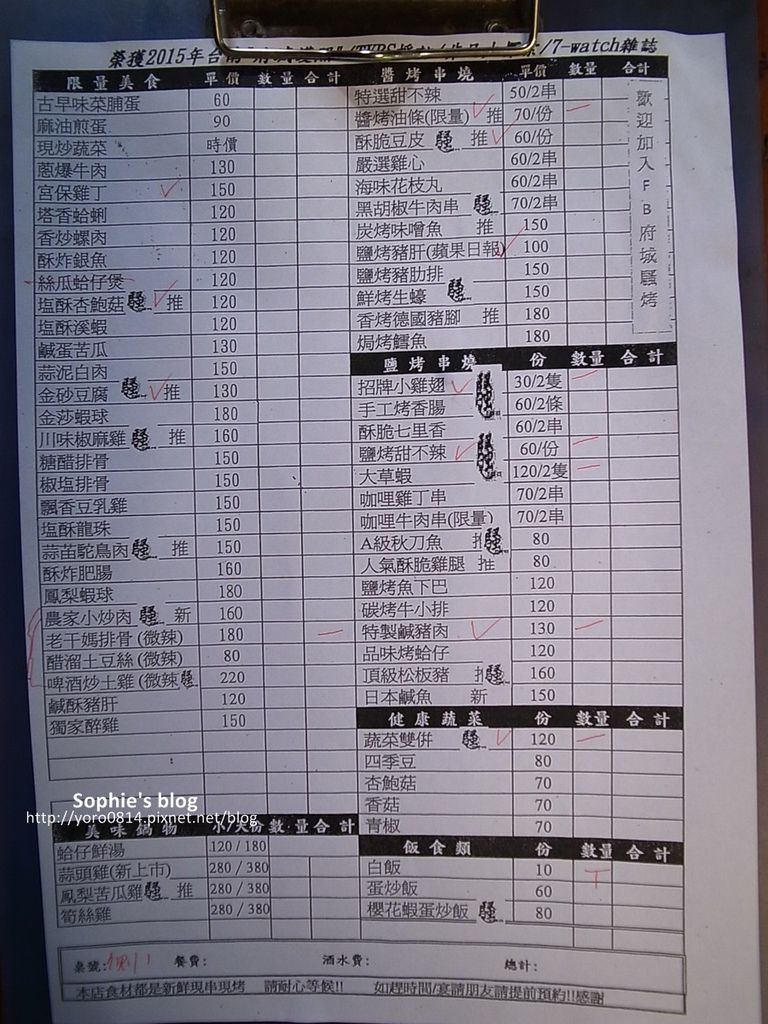 榮獲2015年台南
/7-watch雜誌
限量美食 單價 數量 合計
古早味菜脯蛋 60
麻油煎蛋 90
現炒蔬菜 時價
蔥爆牛肉 130
宮保雞丁 150
塔香蛤蜊 120
香炒螺肉 120
酥炸銀魚 120
絲瓜蛤仔煲 120
塩酥杏鮑菇 騷 推 120
塩酥溪蝦 120
鹹蛋苦瓜 130
蒜泥白肉 150
金砂豆腐 騷 推 130
金莎蝦球 180
川味椒麻雞 騷 推 160
糖醋排骨 150
椒塩排骨 150
飄香豆乳雞 150
塩酥龍珠 150
蒜苗鴕鳥肉 騷 推 150
酥炸肥腸 160
鳳梨蝦球 180
農家小炒肉 騷 新 160
老干媽排骨(微辣) 180
醋溜土豆絲(微辣) 80
啤酒炒土雞(微辣 騷 220
鹹酥豬肝 120
獨家醉雞 150
Sophie's blog
http://yoro0814.pixnet.net/blog
美味鍋物 小/大份 數量 合計
蛤仔鮮湯 120/180
蒜頭雞(新上市) 280/380
鳳梨苦瓜雞 騷 推 280/380
筍絲雞 280/380
醬烤串燒 單價 數量 合計
特選甜不辣 50/2串
醬烤油條(限量) 推 70/份
酥脆豆皮 騷 推 60/份
嚴選雞心 60/2串
海味花枝丸 60/2串
黑胡椒牛肉串 騷 70/2串
炭烤味噌魚 推 150
鹽烤豬肝(蘋果日報) 100
鹽烤豬肋排 150
鮮烤生蠔 騷 150
香烤德國豬腳 推 180
焗烤鱈魚 180
歡迎加入FB府城騷烤
鹽烤串燒 份 數量 合計
招牌小雞翅 騷 30/2隻
手工烤香腸 騷 60/2條
酥脆七里香 60/2串
鹽烤甜不辣 騷 60/份
大草蝦 騷 120/2隻
咖哩雞丁串 70/2串
咖哩牛肉串(限量) 70/2串
A級秋刀魚 騷 80
人氣酥脆雞腿 推 80
鹽烤魚下巴 120
碳烤牛小排 120
特製鹹豬肉 130
品味烤蛤仔 120
頂級松板豬 騷 160
日本鹹魚 新 150
健康蔬菜 份 數量 合計
蔬菜雙併 騷 120
四季豆 80
杏鮑菇 70
香菇 70
青椒 70
飯食類 份 數量 合計
白飯 10
蛋炒飯 60
櫻花蝦蛋炒飯 騷 80
桌號: 餐費: 酒水費: 總計:
本店食材都是新鮮現串現烤 請耐心等候!! 如趕時間/宴請朋友請提前預約!!感謝